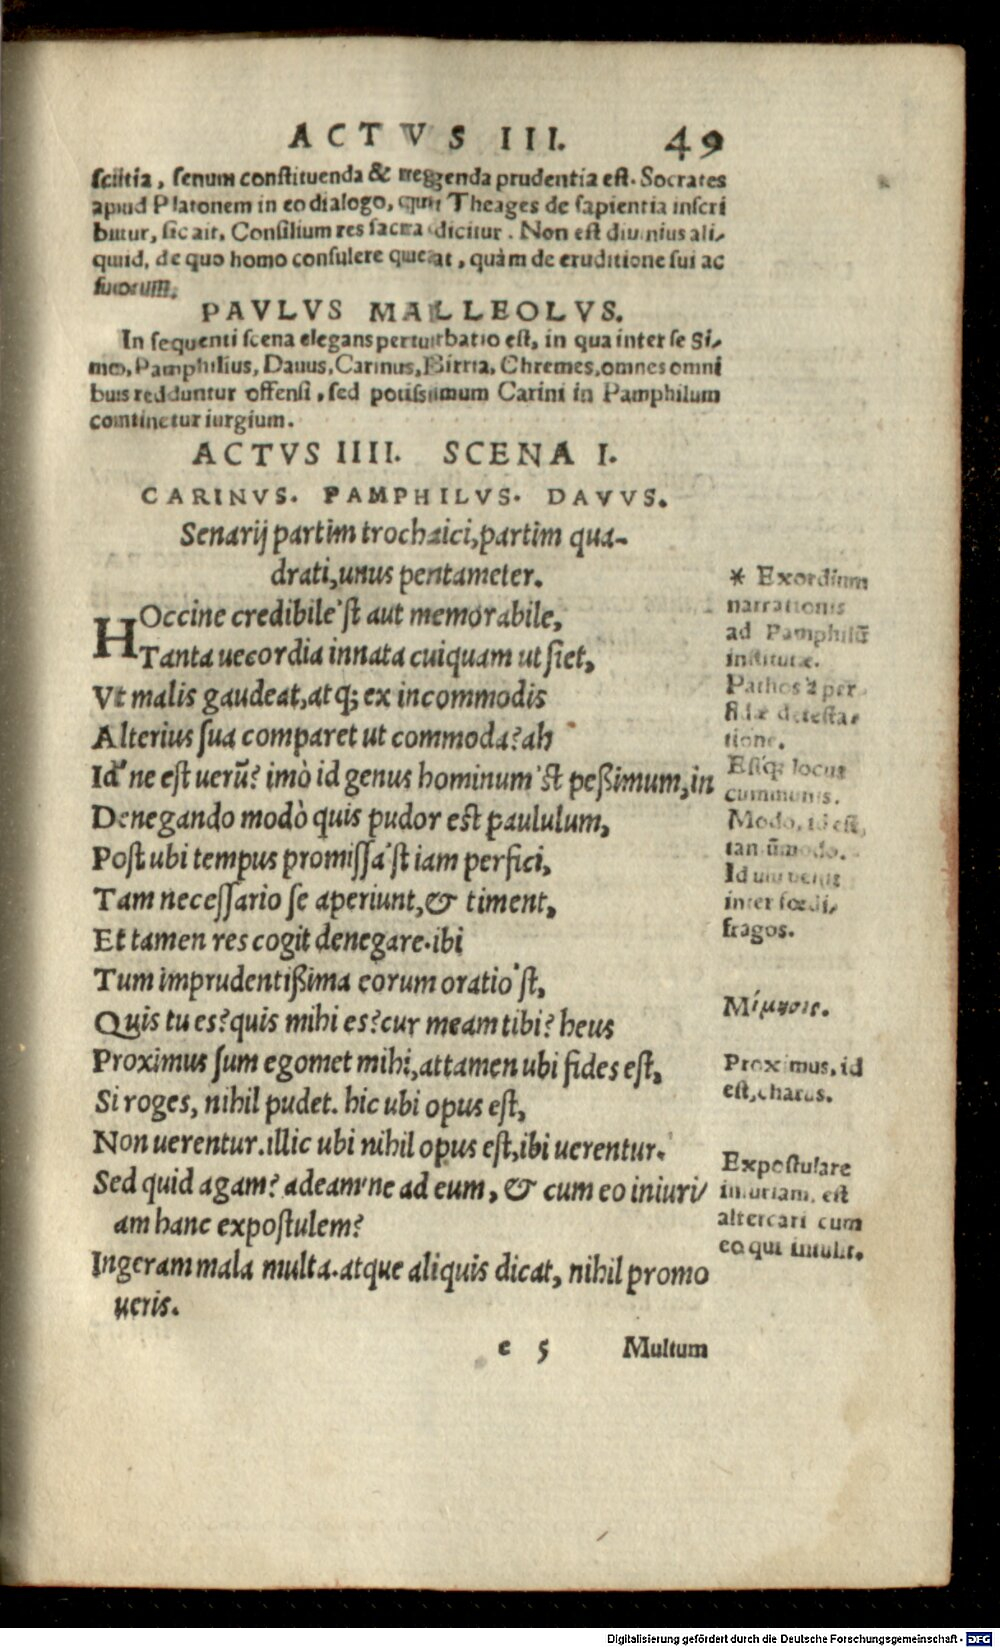 ACTVS III. 49
scitia, senum constituenda & regenda prudentia est. Socrates
apud Platonem in eo dialogo, qui Theages de sapientia inscri
bitur, sic ait, Consilium res sacra dicitur. Non est diuinius ali-
quid, de quo homo consulere queat, quàm de eruditione sui ac
suorum.
PAVLVS MALLEOLVS.
In sequenti scena elegans perturbatio est, in qua inter se Si-
mo, Pamphilius, Dauus, Carinus, Birria, Chremes, omnes omni
bus redduntur offensi, sed potissimum Carini in Pamphilum
continetur iurgium.
ACTVS IIII. SCENA I.
CARINVS. PAMPHILVS. DAVVS.
Senarij partim trochaici, partim qua-
drati, unus pentameter.
HOccine credibile'st aut memorabile,
Tanta uecordia innata cuiquam ut siet,
Vt malis gaudeat, atq; ex incommodis
Alterius sua comparet ut commoda? ah
Id'ne est uerū? imò id genus hominum'st peßimum, in
Denegando modò quis pudor est paululum,
Post ubi tempus promissa'st iam perfici,
Tam necessario se aperiunt, & timent,
Et tamen res cogit denegare. ibi
Tum imprudentißima eorum oratio'st,
Quis tu es? quis mihi es? cur meam tibi? heus
Proximus sum egomet mihi, attamen ubi fides est,
Si roges, nihil pudet. hic ubi opus est,
Non uerentur. illic ubi nihil opus est, ibi uerentur.
Sed quid agam? adeam'ne ad eum, & cum eo iniuri
am hanc expostulem?
Ingeram mala multa. atque aliquis dicat, nihil promo
ueris.
* Exordium
narrationis
ad Pamphilū
institutæ.
Pathos à per
fidæ detesta-
tione.
Estq; locus
cummunis.
Modo, id est,
tantūmodo.
Id uiu
inter fœdi-
fragos.
Μίμησις.
Proximus, id
est, charus.
Expostulare
iniuriam, est
altercari cum
eo qui intulit.
e 5 Multum
Digitalisierung gefördert durch die Deutsche Forschungsgemeinschaft - DFG